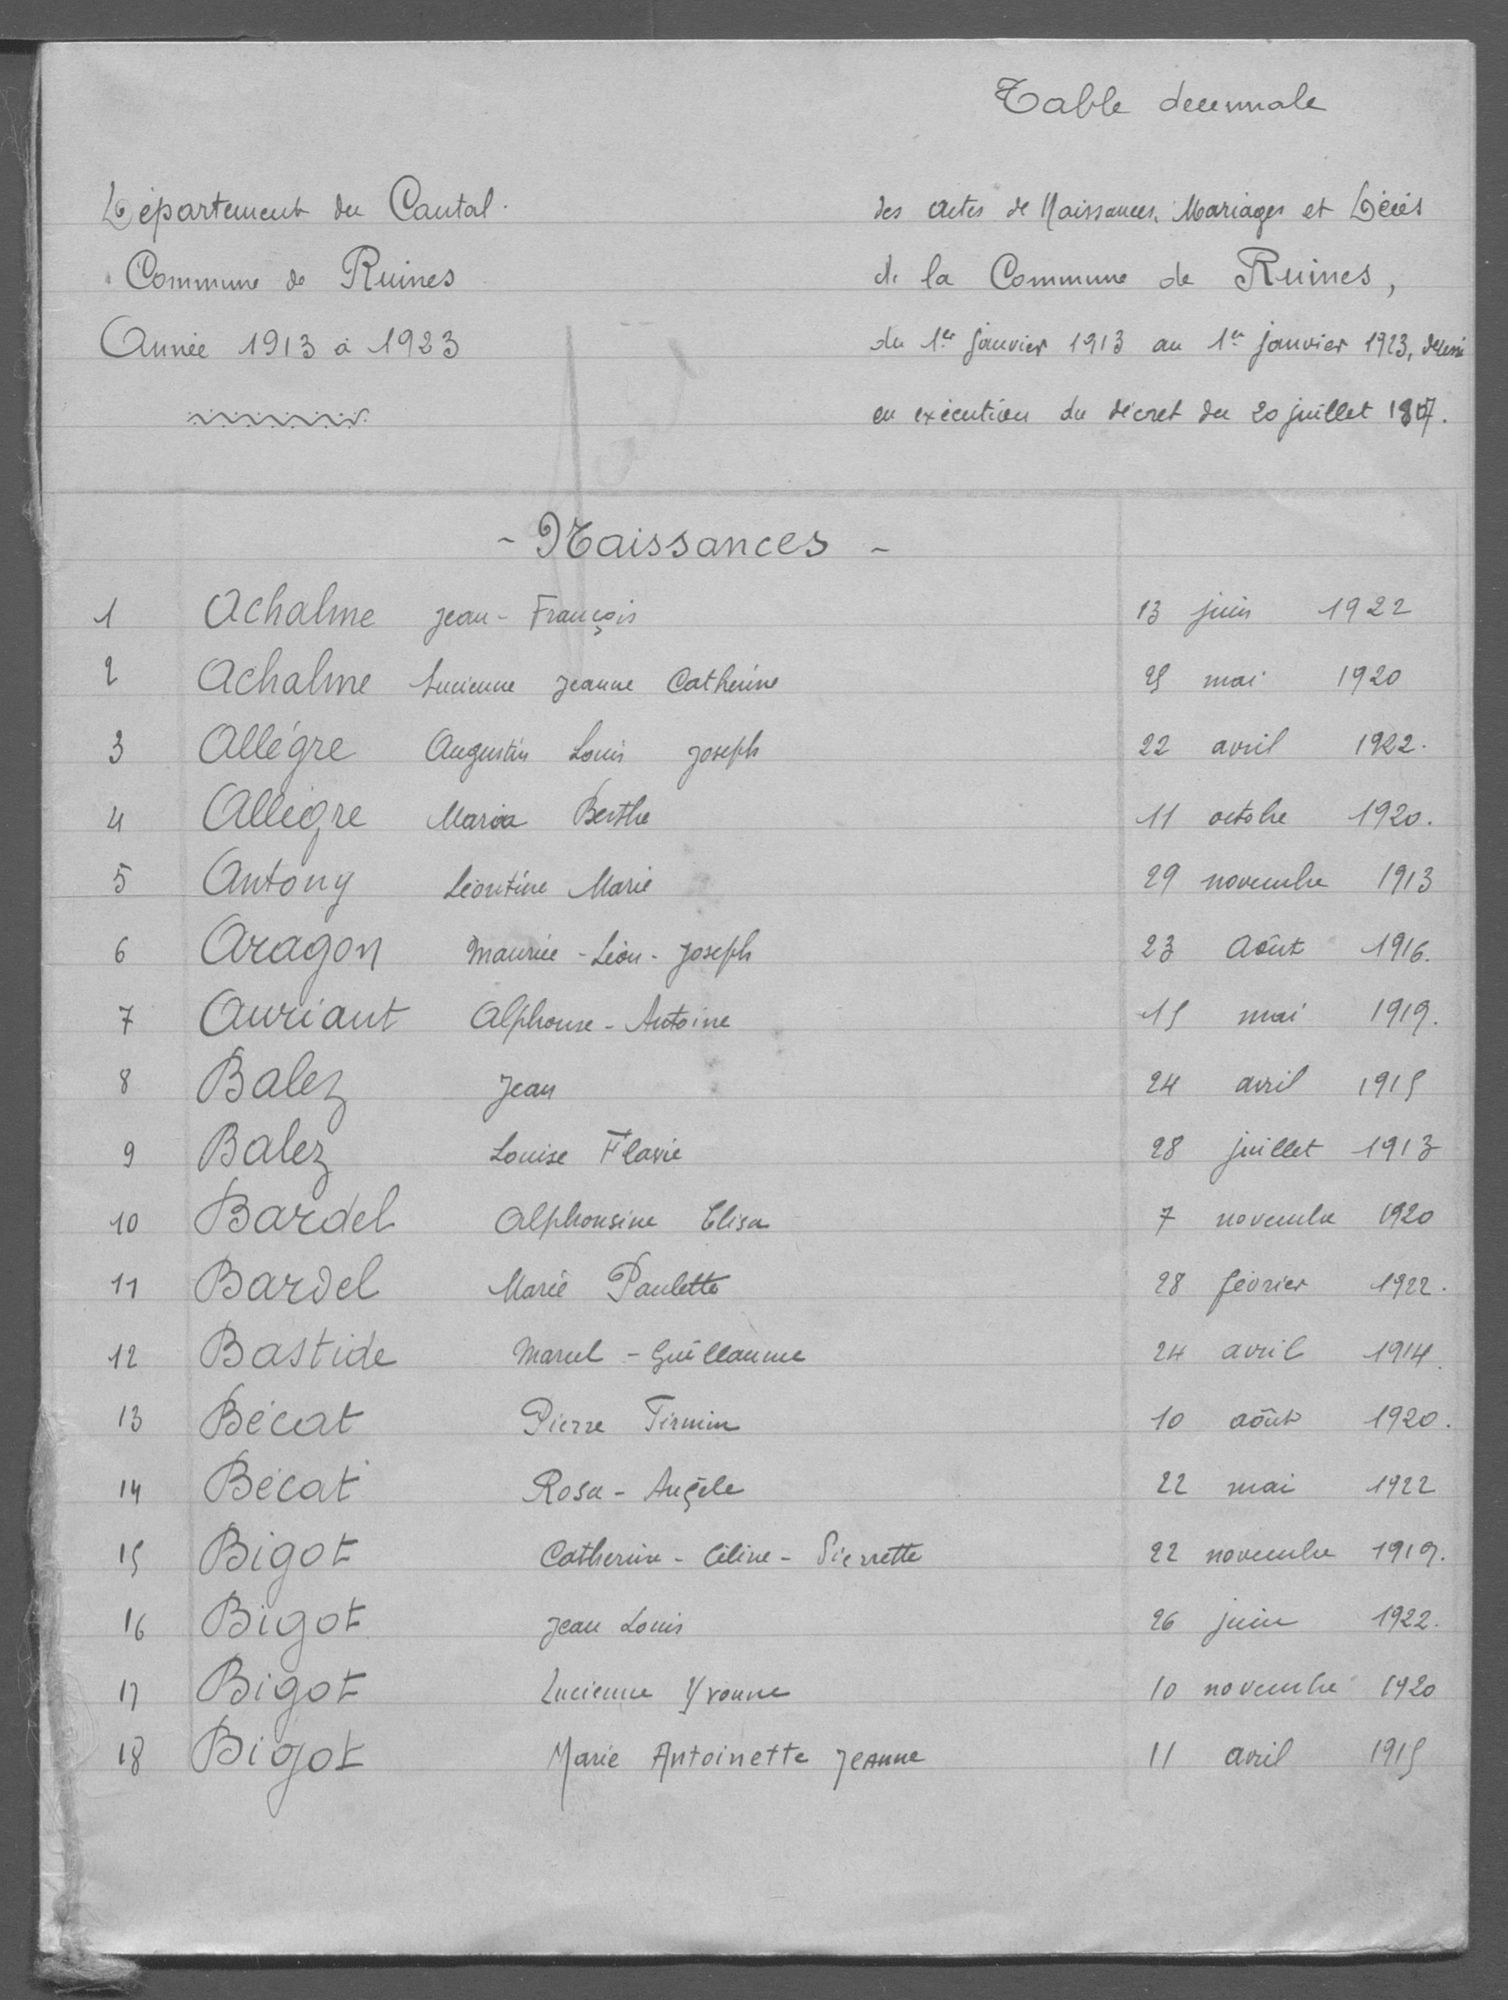 Table decennale
Département du Cantal.
Commune de Ruines
Année 1913 à 1923
des actes de Naissances, Mariages et Décès
de la Commune de Ruines,
du 1er janvier 1913 au 1er janvier 1923,
en exécution du décret du 20 juillet 1807.
- Naissances -
1 Achalme Jean - François 13 juin 1922
2 Achalme Lucienne Jeanne Catherine 25 mai 1920
3 Allégre Augustin Louis Joseph 22 avril 1922.
4 Allègre Maria Berthe 11 octobre 1920.
5 Antony Léontine Marie 29 novembre 1913
6 Aragon Maurice - Léon - Joseph 23 Août 1916.
7 Auriant Alphonse - Antoine 15 mai 1919.
8 Balez Jean 24 avril 1915
9 Balez Louise Flavie 28 juillet 1913
10 Bardel Alphonsine Elisa 7 novembre 1920
11 Bardel Marie Paulette 28 février 1922.
12 Bastide Marcel - Guillaume 24 avril 1914.
13 Bécat Pierre Firmin 10 août 1920.
14 Bécat Rosa - Angèle 22 mai 1922
15 Bigot Catherine - Céline - Pierrette 22 novembre 1919.
16 Bigot Jean Louis 26 juin 1922.
17 Bigot Lucienne Yvonne 10 novembre 1920
18 Bigot Marie Antoinette Jeanne 11 avril 1915